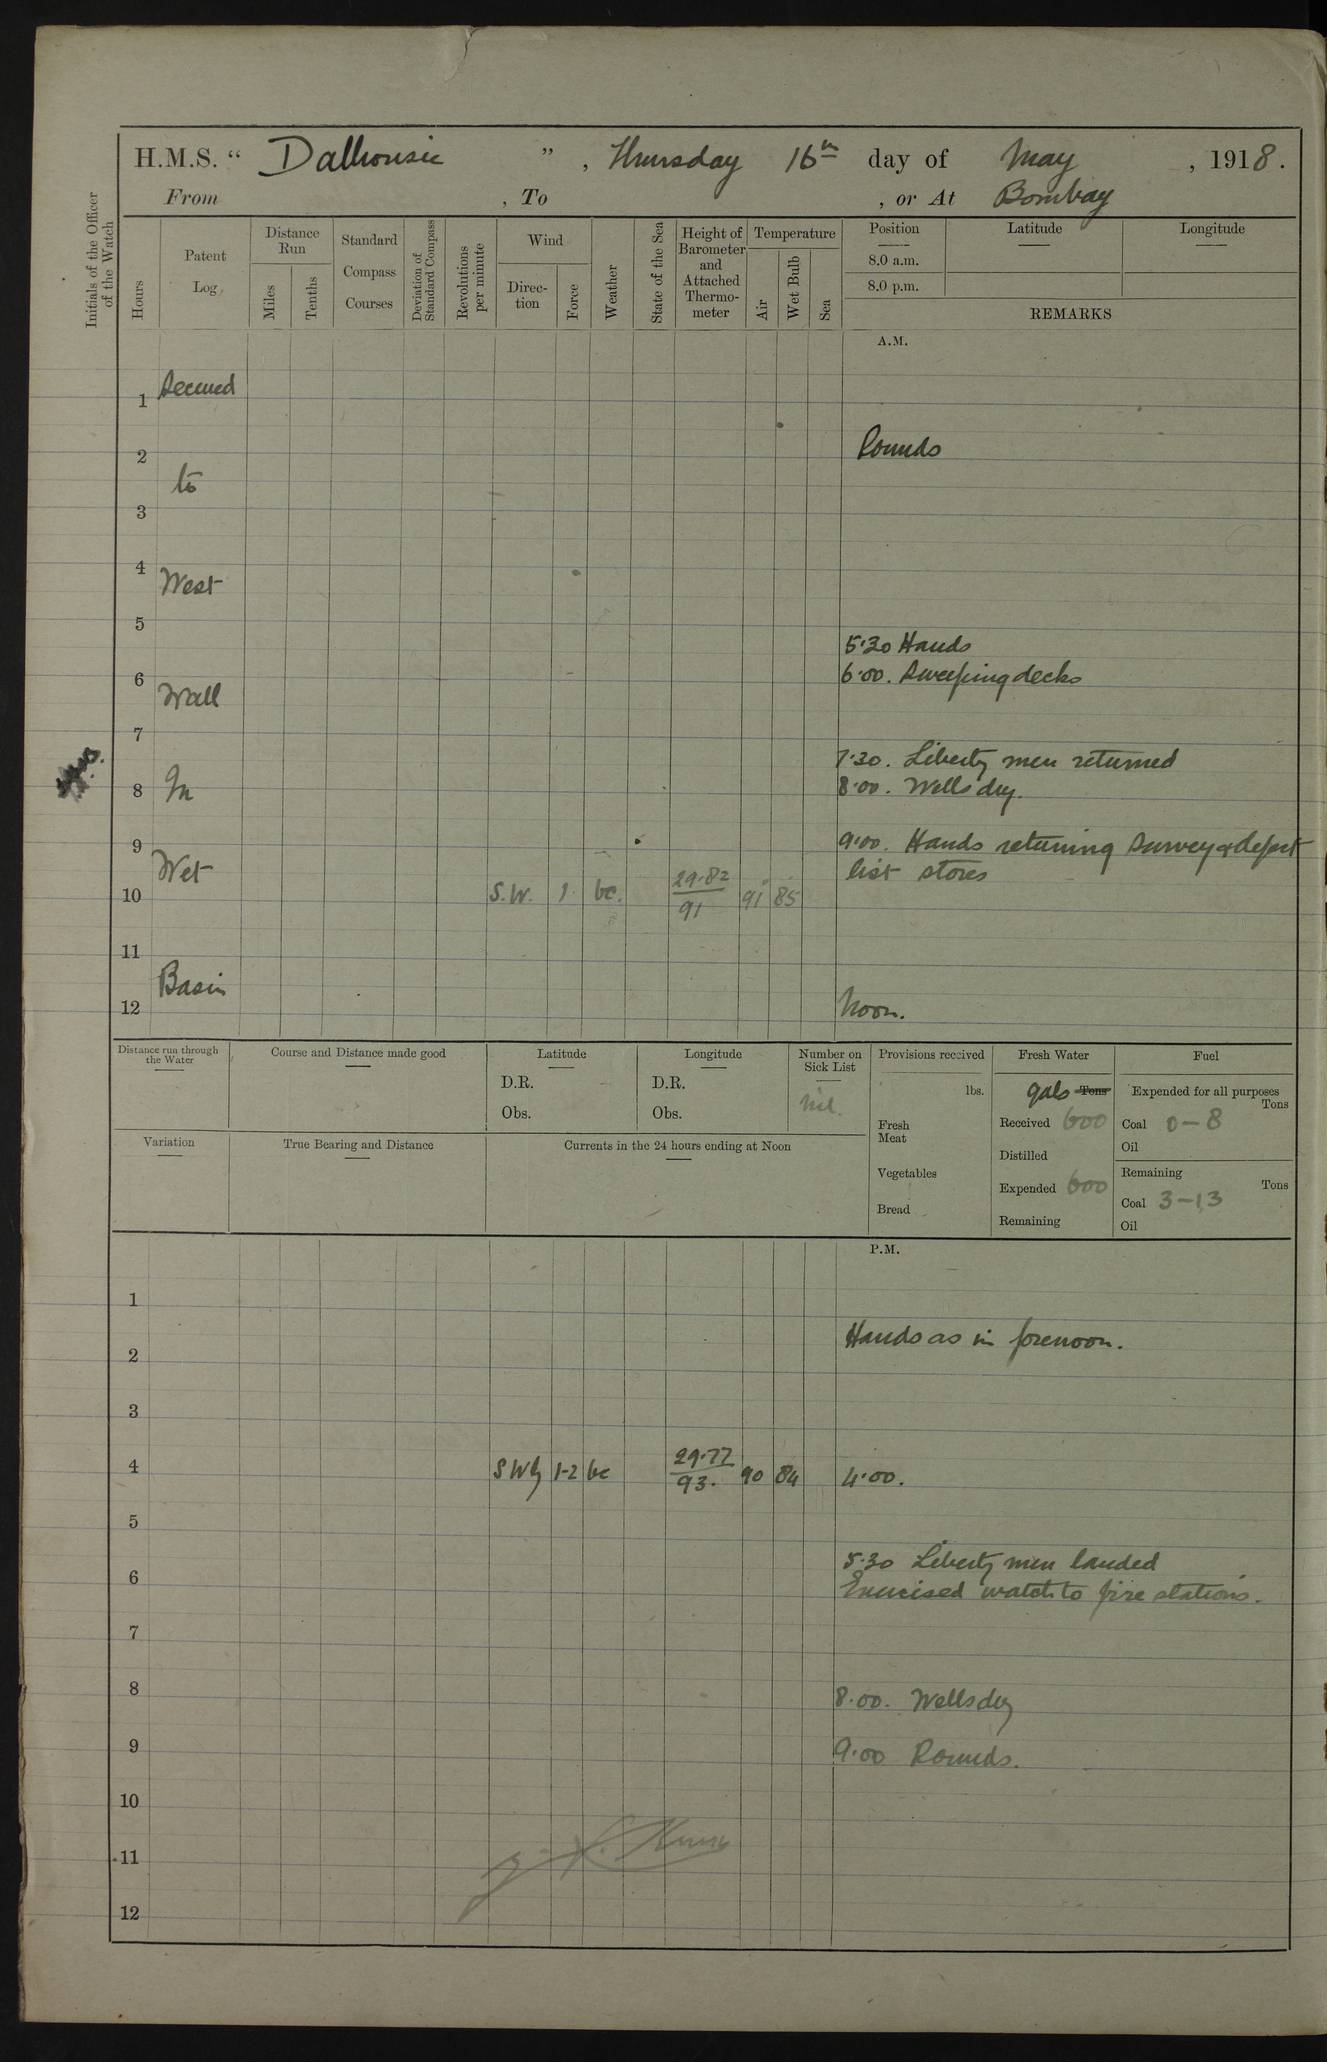 H.M.S. “ Dalhousie ” , Thursday 16th day of May , 1918.
From , To , or At Bombay
Initials of the Officer of the Watch
Hours
Patent Log
Distance Run
Miles
Tenths
Standard Compass Courses
Deviation of Standard Compass
Revolutions per minute
Wind
Direction
Force
Weather
State of the Sea
Height of Barometer and Attached Thermometer
Temperature
Air
Wet Bulb
Sea
Position
Latitude
Longitude
8.0 a.m.
8.0 p.m.
REMARKS
A.M.
1 Secured
2 Rounds
to
3
4
West
5
5.30 Hands
6 6.00. Sweeping decks
Wall
7
7.30. Liberty men returned
8 In 8.00. Wells dry.
9 9.00. Hands returning Survey & defect
Wet list stores
10 S.W. 1 bc. 29.82 91 91 85
11
Basin
12 Noon.
Distance run through the Water
Course and Distance made good
Latitude
D.R.
Obs.
Longitude
D.R.
Obs.
Number on Sick List
nil.
Provisions received
lbs.
Fresh Meat
Vegetables
Bread
Fresh Water
gals Tons
Received 600
Distilled
Expended 600
Remaining
Fuel
Expended for all purposes
Tons
Coal 0-8
Oil
Remaining
Tons
Coal 3-13
Oil
Variation
True Bearing and Distance
Currents in the 24 hours ending at Noon
P.M.
1
Hands as in forenoon.
2
3
4 S Wly 1-2 bc 29.77 93. 90 84 4.00.
5
5.30 Liberty men landed
6 Exercised watch to fire stations.
7
8 8.00. Wells dry
9 9.00 Rounds.
10
11
12